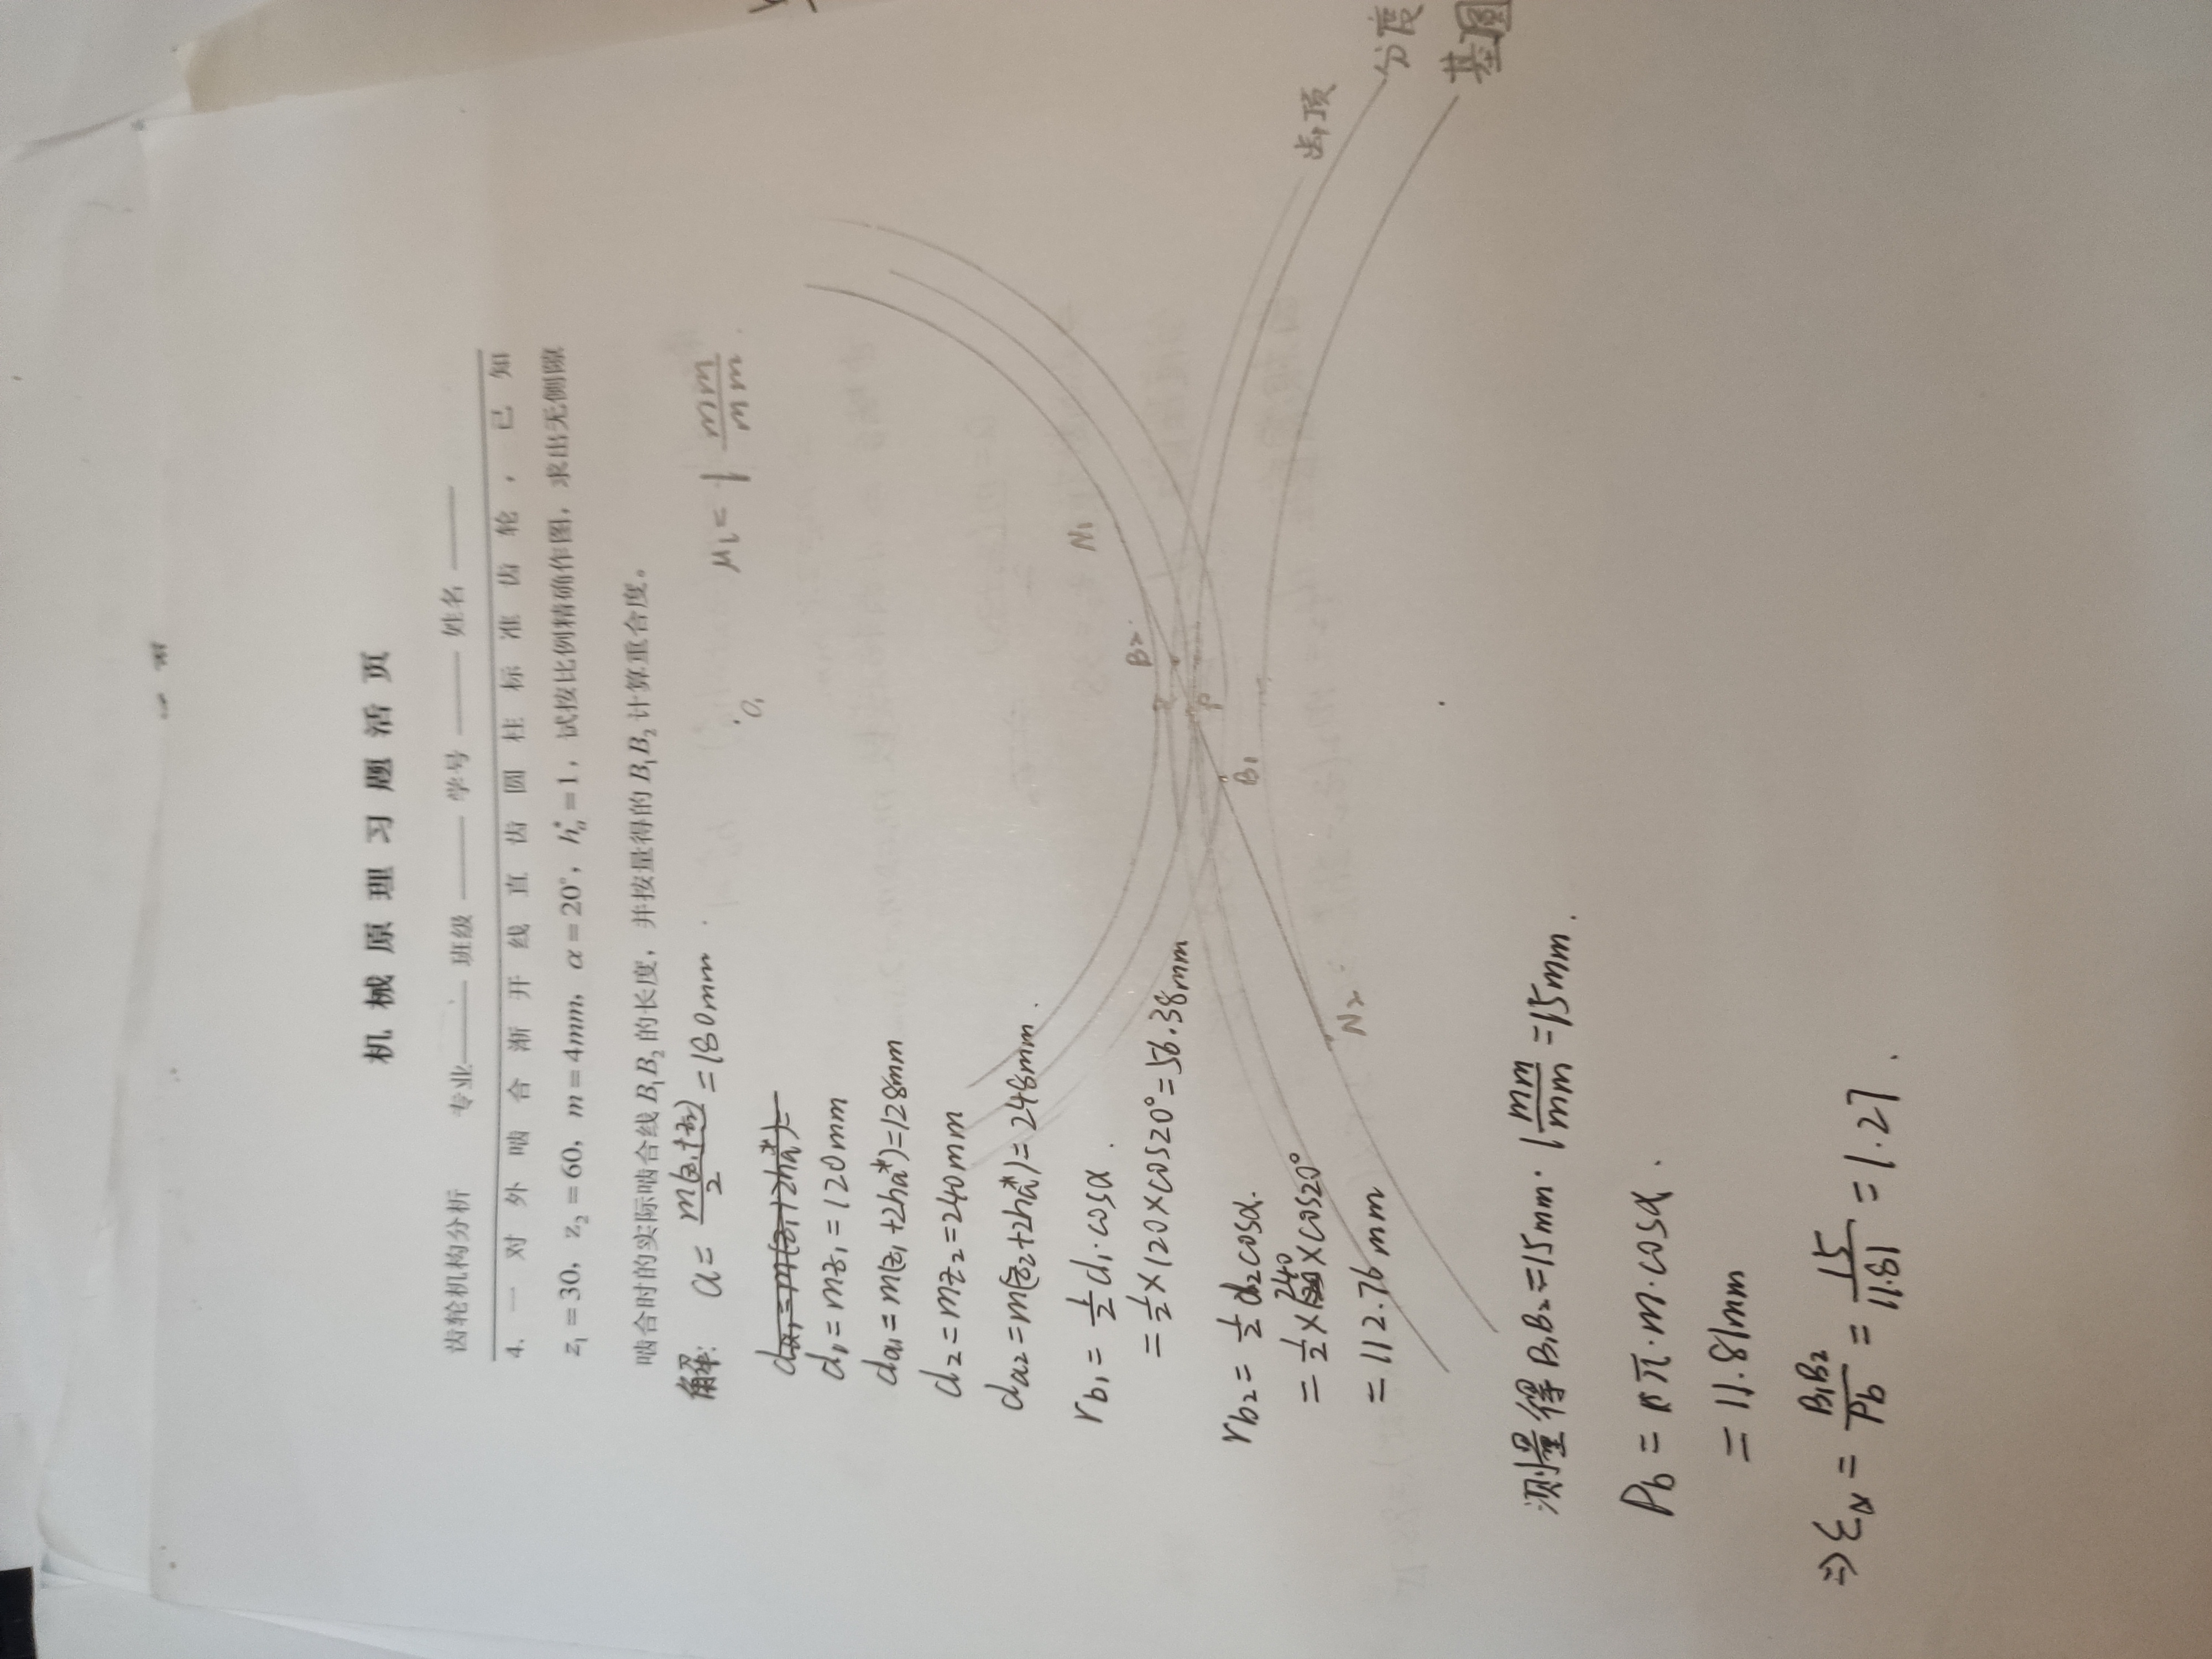 机械原理习题活页
齿轮机构分析 专业 班级 学号 姓名
4. 一对外啮合渐开线直齿圆柱标准齿轮，已知
z₁=30, z₂=60, m=4mm, α=20°, hₐ*=1, 试按比例精确作图，求出无侧隙
啮合时的实际啮合线B₁B₂的长度，并按量得的B₁B₂计算重合度。
解: a = m(z₁+z₂)/2 = 180mm.
da₁=m(z₁+2ha*)=
d₁=mz₁=120mm
da₁=m(z₁+2ha*)=128mm
d₂=mz₂=240mm
da₂=m(z₂+2ha*)=248mm.
rb₁=1/2 d₁·cosα.
=1/2×120×cos20°=56.38mm
rb₂=1/2 d₂cosα.
=1/2×240×cos20°
=112.76mm
μl=1 mm/mm
O₁
N₁
B₂
P
B₁
N₂
齿顶
分度
基圆
测量得B₁B₂=15mm·1 mm/mm=15mm.
Pb=π·m·cosα.
=11.81mm
⇒ εα=B₁B₂/Pb=15/11.81=1.27.